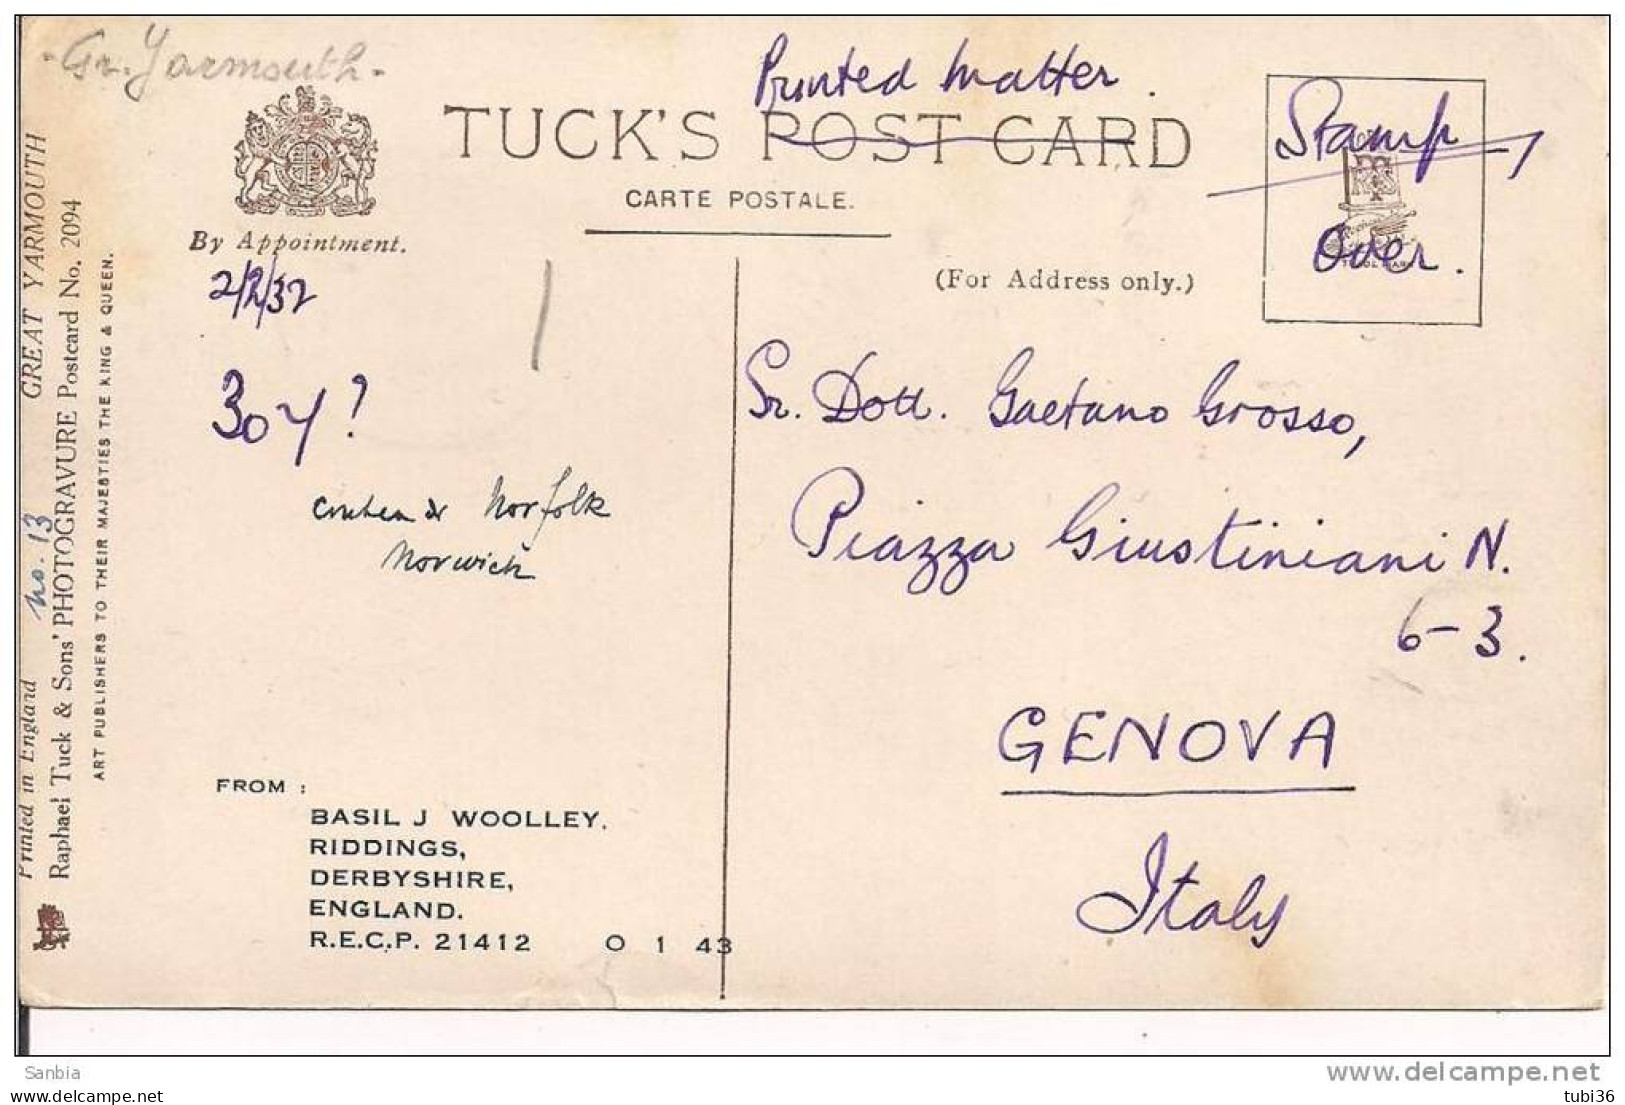 -Gr. Yarmouth-
Printed matter.
TUCK'S POST CARD
CARTE POSTALE.
Stamp
over.
By Appointment.
(For Address only.)
2/2/32
304?
Norfolk
Norwich
Sr. Dott. Gaetano Grosso,
Piazza Giustiniani N.
6-3.
GENOVA
Italy
FROM :
BASIL J WOOLLEY.
RIDDINGS,
DERBYSHIRE,
ENGLAND.
R.E.C.P. 21412 O 1 43
Printed in England no. 13 GREAT YARMOUTH
Raphael Tuck & Sons' PHOTOGRAVURE Postcard No. 2094
ART PUBLISHERS TO THEIR MAJESTIES THE KING & QUEEN.
Sanbia
www.delcampe.net
tubi36